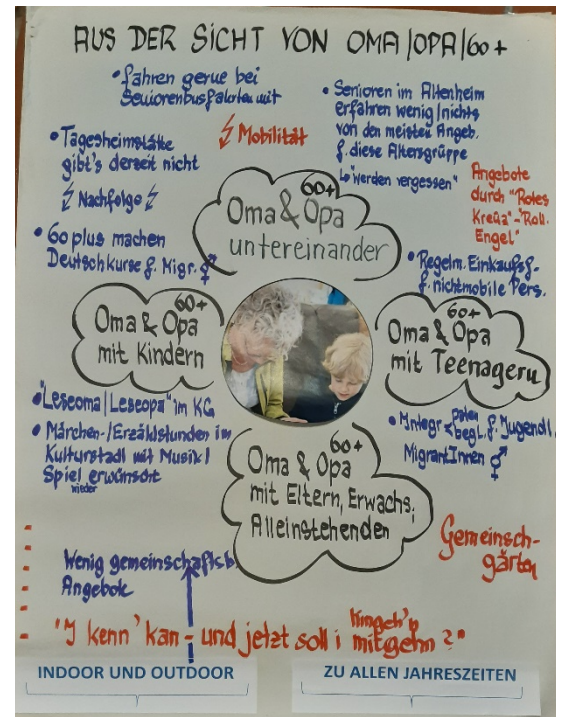 AUS DER SICHT VON OMA/OPA/60+
• fahren gerne bei
Seniorenbusfahrten mit
Mobilität
• Senioren im Altenheim
erfahren wenig/nichts
von den meisten Angeb.
f. diese Altersgruppe
"werden vergessen"
• Tagesheimstätte
gibt's derzeit nicht
Nachfolge
• 60 plus machen
Deutschkurse f. Migr.
60+
Oma & Opa
untereinander
Angebote
durch "Rotes
Kreuz"-"Roll.
Engel"
• Regelm. Einkaufsf.
f. nichtmobile Pers.
60+
Oma & Opa
mit Kindern
60+
Oma & Opa
mit Teenagern
"Leseoma/Leseopa" im KG
• Märchen-/Erzählstunden im
Kulturstadl mit Musik/
Spiel erwünscht
wieder
• Integr. paten
begl. f. Jugendl.
MigrantInnen
60+
Oma & Opa
mit Eltern, Erwachs.,
Alleinstehenden
Gemeinsch-
gärten
Wenig gemeinschaftl.
Angebote
hingeh'n
"I kenn' kan - und jetzt soll i mitgehn?"
INDOOR UND OUTDOOR
ZU ALLEN JAHRESZEITEN